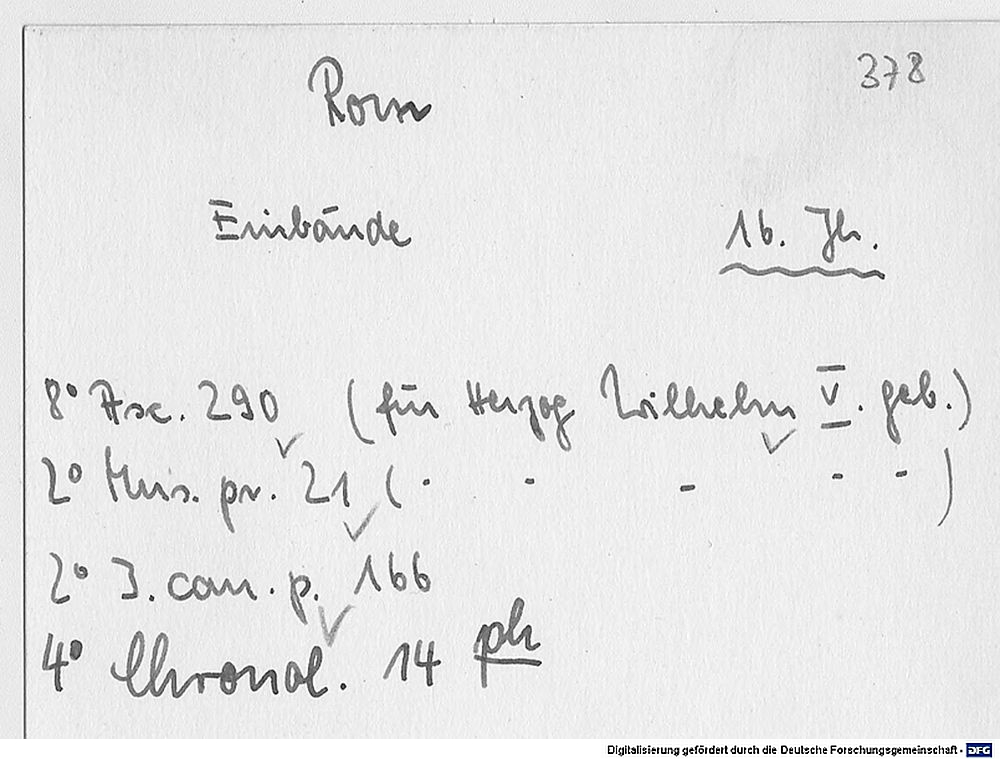 378
Rom
Einbände 16. Jh.
8° Asc. 290 (für Herzog Wilhelm V. geb.)
2° Mus. pr. 21 ( - - - - - )
2° J. can. p. 166
4° Chronol. 14 ph
Digitalisierung gefördert durch die Deutsche Forschungsgemeinschaft - DFG